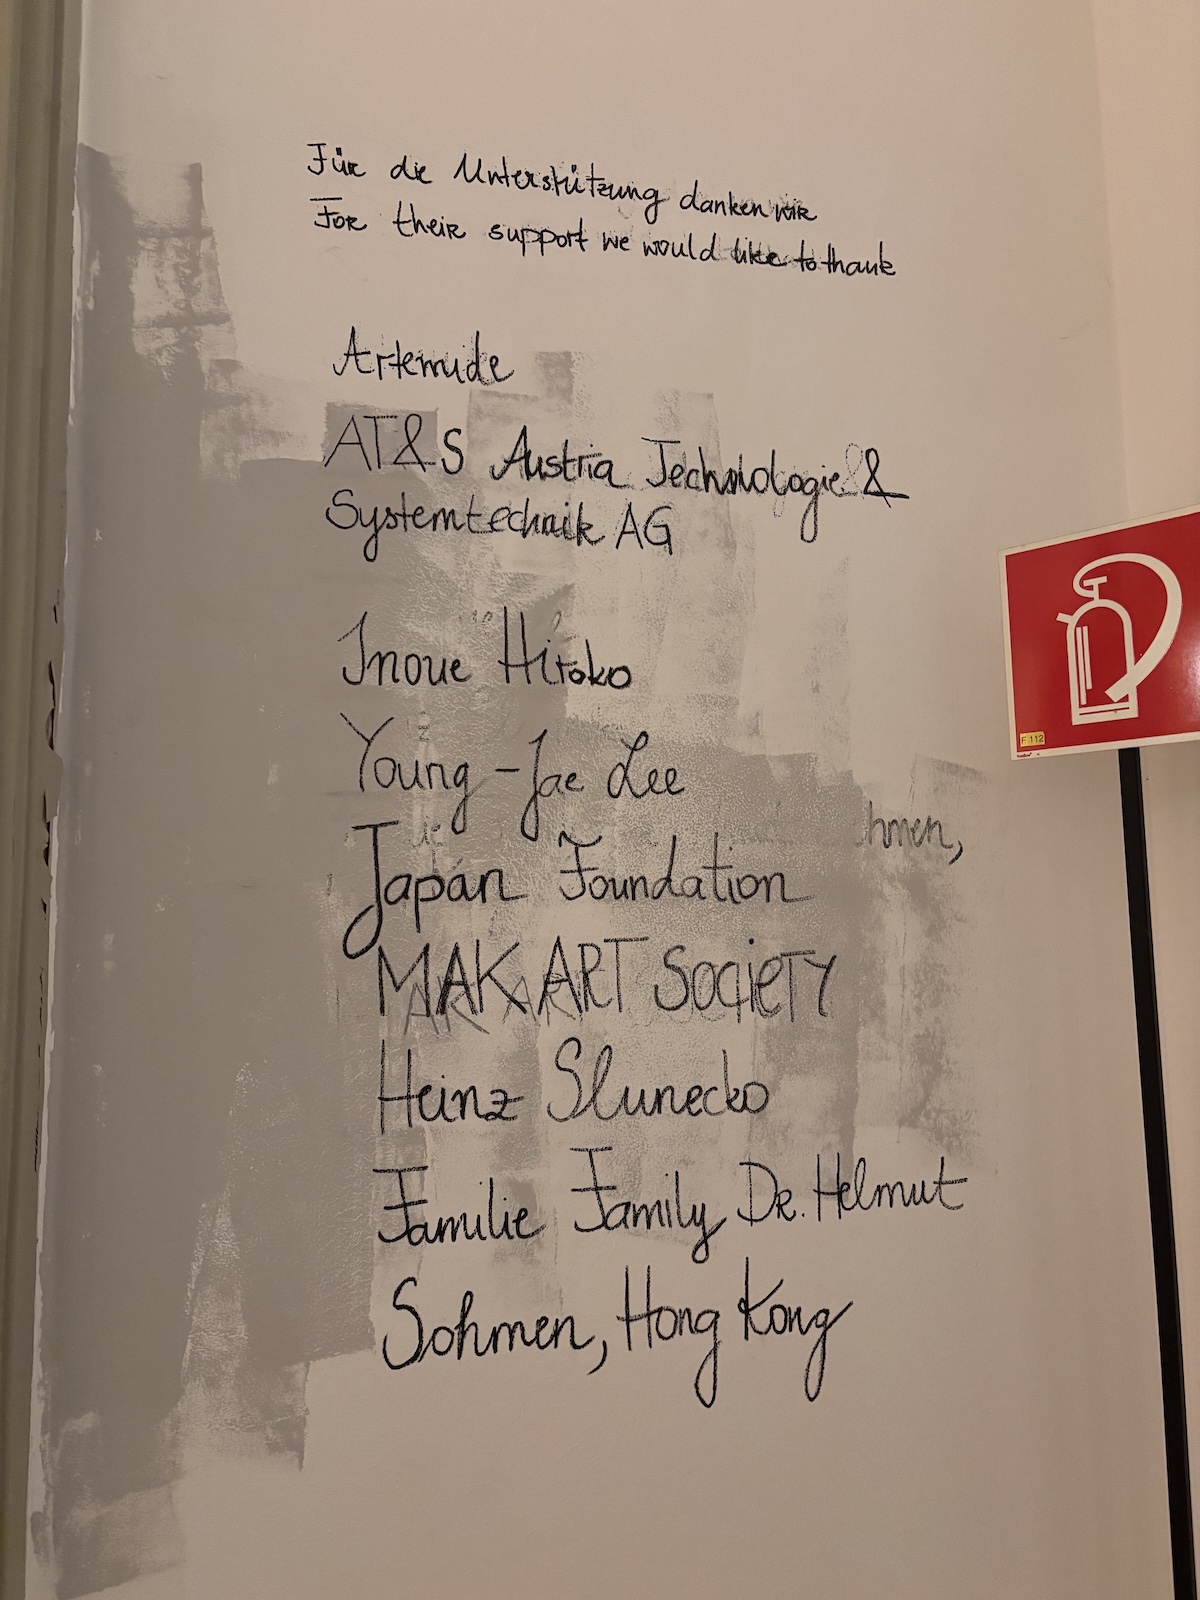 Für die Unterstützung danken wir
For their support we would like to thank
Artemide
AT&S Austria Technologie &
Systemtechnik AG
Inoue Hiroko
Young-Jae Lee
hmen,
Japan Foundation
MAK ART SOCIETY
Heinz Slunecko
Familie Family Dr. Helmut
Sohmen, Hong Kong
F 112